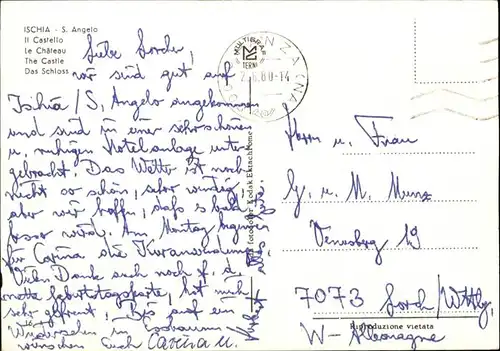 ISCHIA - S. Angelo
Il Castello
Le Château
The Castle
Das Schloss
Liebe Lorcher,
wir sind gut auf
Ischia/S. Angelo angekommen
und sind in einer sehr schönen
u. ruhigen Hotelanlage unter-
gebracht. Das Wetter ist noch
nicht so schön, sehr windig,
aber wir hoffen, daß es bald
besser wird. Am Montag beginnen
für Carina die Kuranwendungen.
Vielen Dank auch noch f. die
nette Geburtstagskarte, hat mich
sehr gefreut. Bis auf ein
Wiedersehen in
wünschen Euch Carina u.
alles Gute
MULTIGRAF
TERNI
80-14
Kodak Ektachrome
Herrn u. Frau
G. u. M. Munz
Venusberg 19
7073 Lorch/Wttbg.
W-Allemagne
Riproduzione vietata